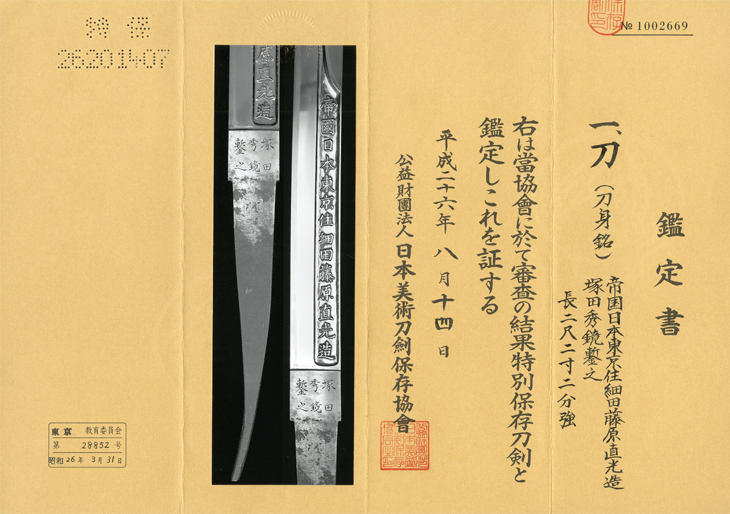 № 1002669
鑑定書
一、刀(刀身銘)
帝国日本東京住細田藤原直光造
塚田秀鏡鏨之
長二尺二寸二分強
右は當協會に於て審査の結果特別保存刀剣と
鑑定しこれを証する
平成二十六年八月十四日
公益財團法人日本美術刀劍保存協會
帝國日本東京住細田藤原直光造
塚田
秀鏡
鏨之
直光造
塚田
秀鏡
鏨之
特保
26201407
東京 教育委員会
第 28852 号
昭和26年3月31日